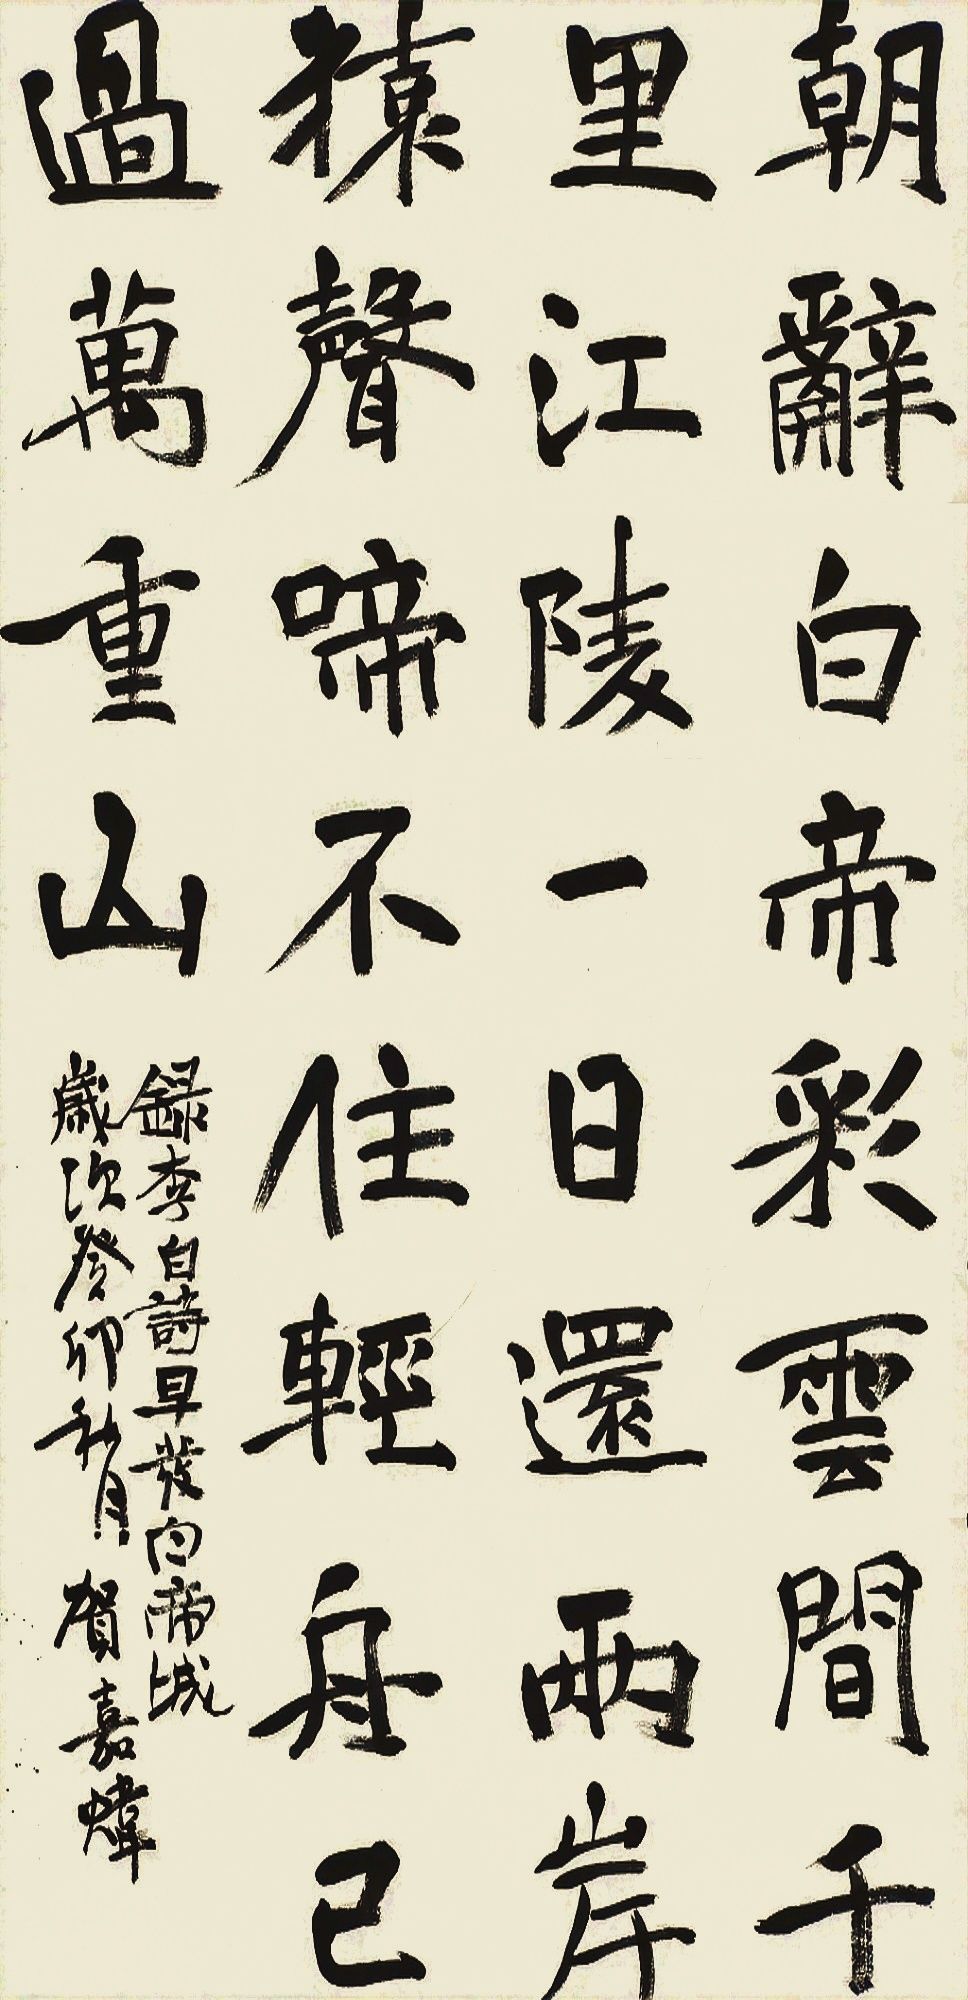 朝辭白帝彩雲間千
里江陵一日還兩岸
猿聲啼不住輕舟已
過萬重山
錄李白詩早發白帝城
歲次癸卯秋月賀嘉煒